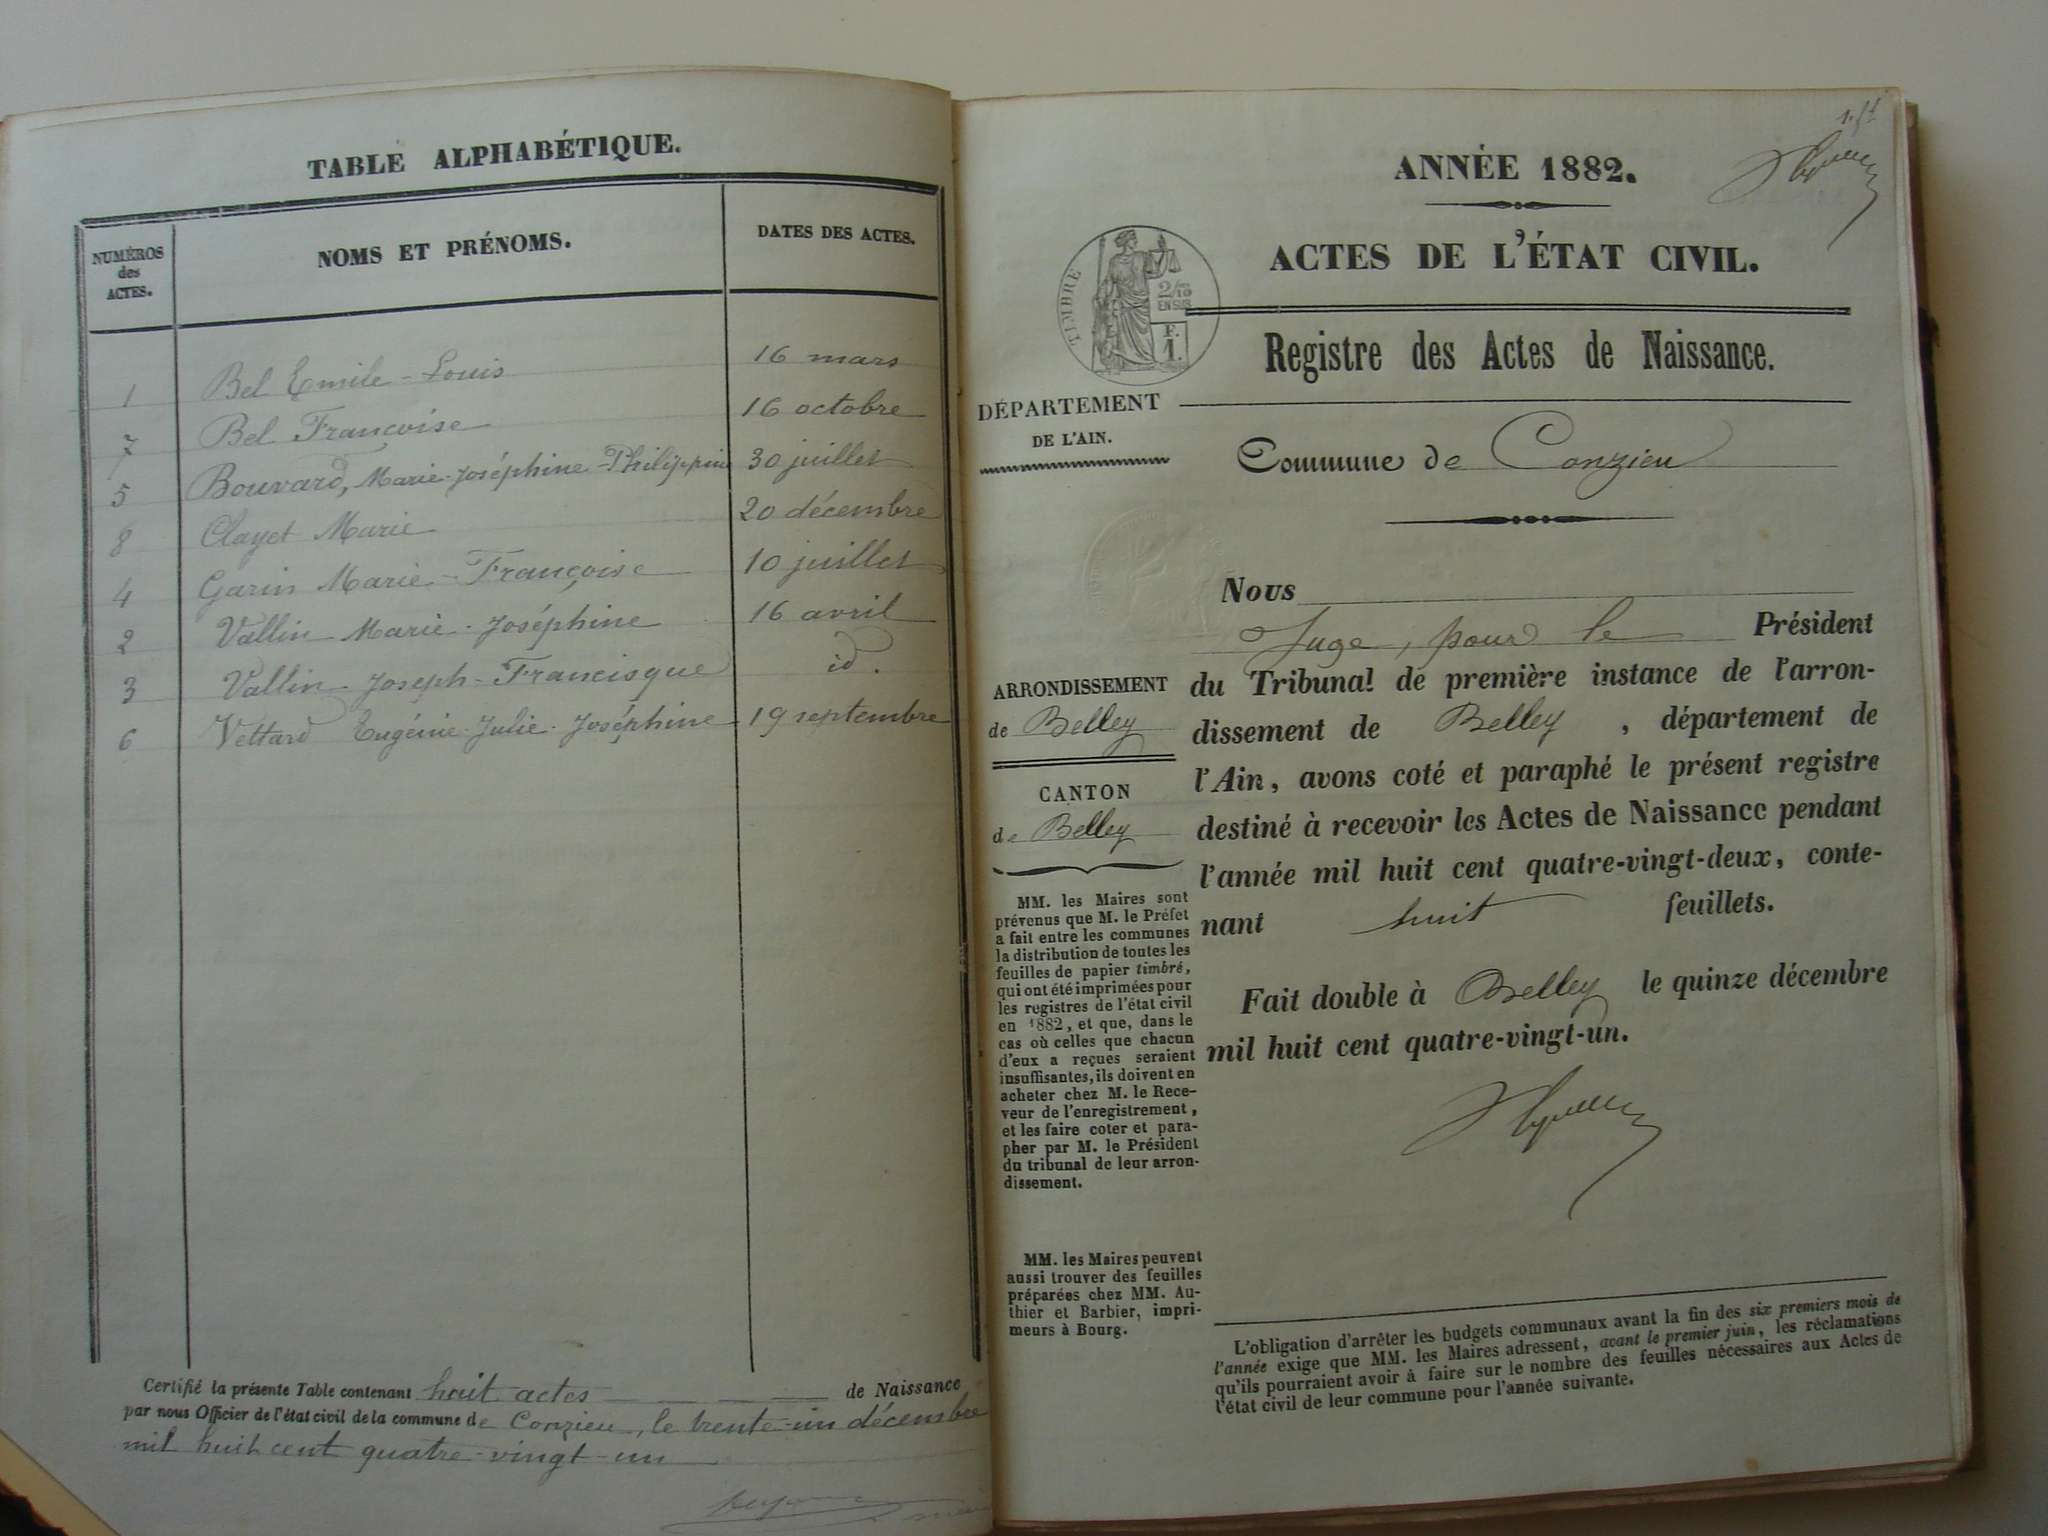 TABLE ALPHABÉTIQUE.
NUMÉROS des ACTES. NOMS ET PRÉNOMS. DATES DES ACTES.
1 Bel Emile-Louis 16 mars
7 Bel Françoise 16 octobre
5 Bouvard, Marie-Joséphine-Philippine 30 juillet
8 Clayet Marie 20 décembre
4 Garin Marie-Françoise 10 juillet
2 Vallin Marie-Joséphine 16 avril
3 Vallin Joseph-Francisque id.
6 Vettard Eugénie-Julie-Joséphine 19 septembre
Certifié la présente Table contenant huit actes de Naissance
par nous Officier de l'état civil de la commune de Conzieu, le trente-un décembre
mil huit cent quatre-vingt-un
ANNÉE 1882.
ACTES DE L'ÉTAT CIVIL.
TIMBRE
2/10
EN SUS
F.
1.
Registre des Actes de Naissance.
DÉPARTEMENT
DE L'AIN.
Commune de Conzieu
Nous
Juge, pour le Président
du Tribunal de première instance de l'arron-
dissement de Belley, département de
l'Ain, avons coté et paraphé le présent registre
destiné à recevoir les Actes de Naissance pendant
l'année mil huit cent quatre-vingt-deux, conte-
nant huit feuillets.
Fait double à Belley le quinze décembre
mil huit cent quatre-vingt-un.
ARRONDISSEMENT
de Belley
CANTON
de Belley
MM. les Maires sont
prévenus que M. le Préfet
a fait entre les communes
la distribution de toutes les
feuilles de papier timbré,
qui ont été imprimées pour
les registres de l'état civil
en 1882, et que, dans le
cas où celles que chacun
d'eux a reçues seraient
insuffisantes, ils doivent en
acheter chez M. le Rece-
veur de l'enregistrement,
et les faire coter et para-
pher par M. le Président
du tribunal de leur arron-
dissement.
MM. les Maires peuvent
aussi trouver des feuilles
préparées chez MM. Au-
thier et Barbier, impri-
meurs à Bourg.
L'obligation d'arrêter les budgets communaux avant la fin des six premiers mois de
l'année exige que MM. les Maires adressent, avant le premier juin, les réclamations
qu'ils pourraient avoir à faire sur le nombre des feuilles nécessaires aux Actes de
l'état civil de leur commune pour l'année suivante.